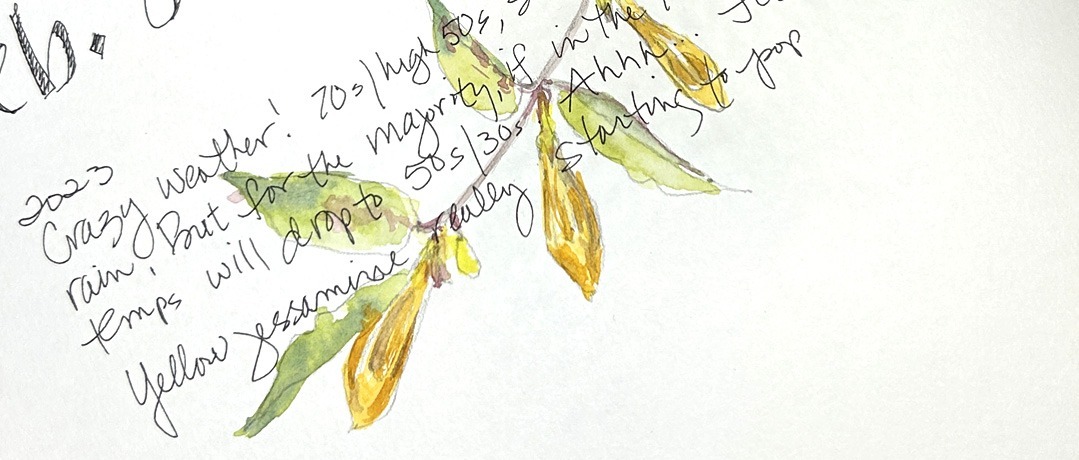 eb.
2023
Crazy weather! 70s/high 50s,
rain, But for the majority, if in the
temps will drop to 50s/30s. Ahhh.
Yellow jessamine really starting to pop